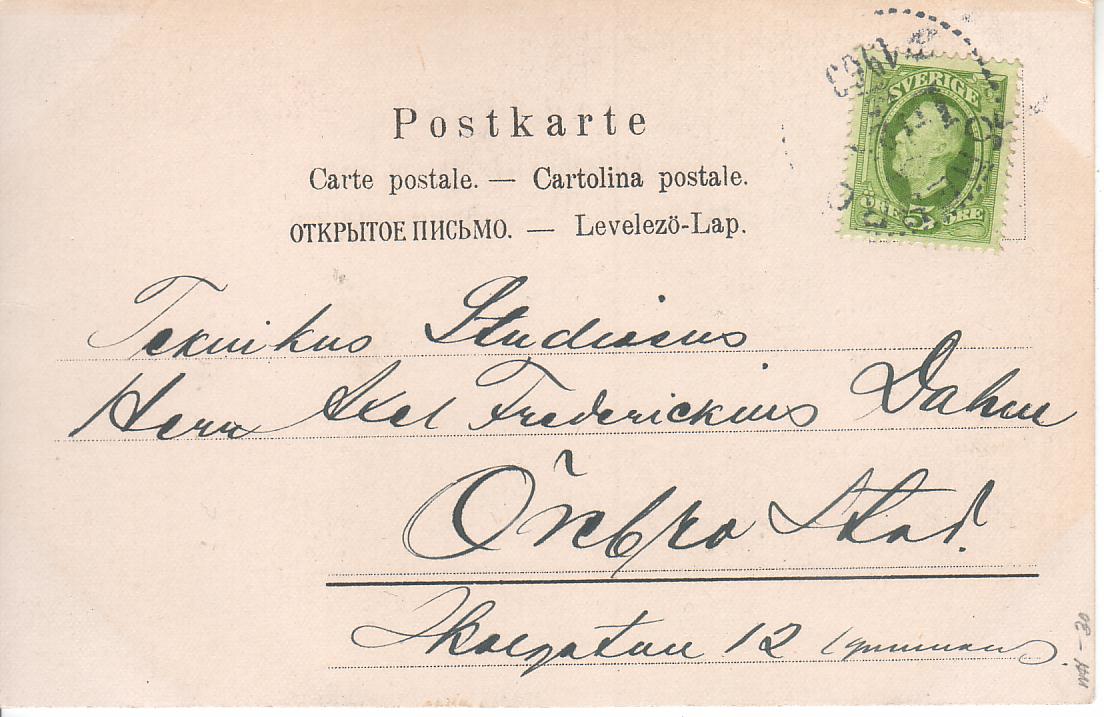 Postkarte
Carte postale. — Cartolina postale.
ОТКРЫТОЕ ПИСЬМО. — Levelező-Lap.
SVERIGE
ÖRE 5 ÖRE
Teknikus Studiosus
Herr Axel Frederickius Dahm
Örebro Stad.
Skolgatan 12